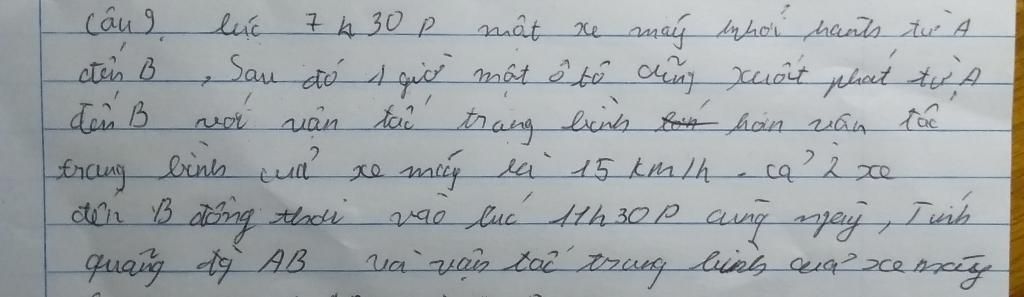 Câu 9. lúc 7h30p một xe máy khởi hành từ A
đến B, Sau đó 1 giờ một ô tô cũng xuất phát từ A
đến B với vận tốc trung bình hơn vận tốc
trung bình của xe máy là 15 km/h. cả 2 xe
đến B đồng thời vào lúc 11h30P cùng ngày, Tính
quãng đg AB và vận tốc trung bình của xe máy